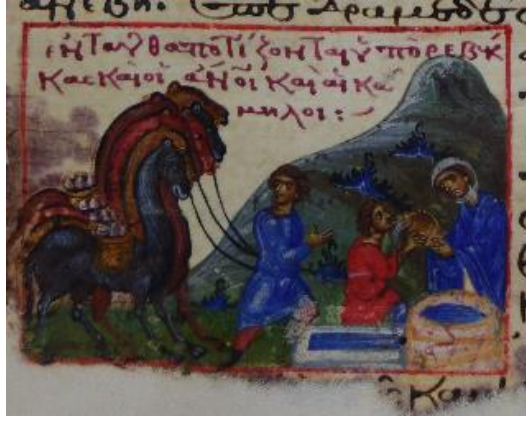 ἐνταῦθα ποτίζονται ὑπὸ ρεβέκ
κας καὶ οἱ ἄνοι καὶ αἱ κά
μιλοι :